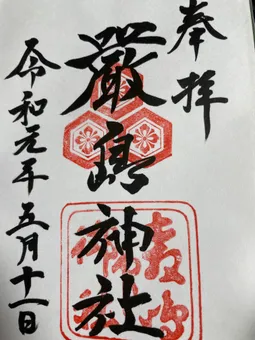 奉拝
厳島神社
令和元年五月十一日